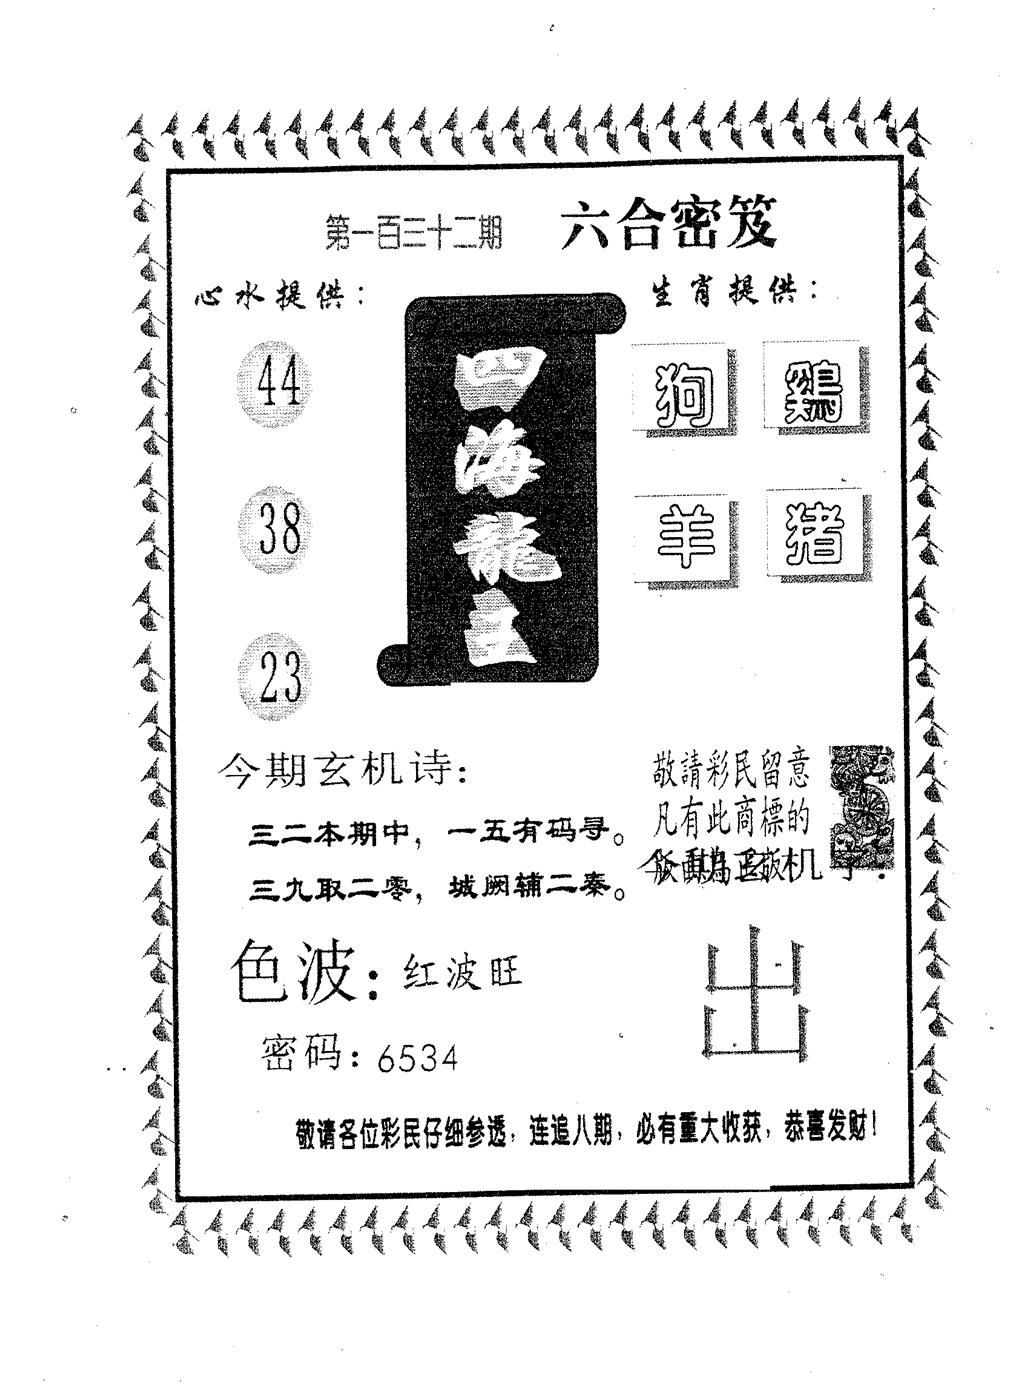 第一百三十二期 六合密笈
心水提供：
生肖提供：
44
38
23
四海龍王
狗 鷄
羊 猪
今期玄机诗：
三二本期中，一五有码寻。
三九取二零，城阙辅二秦。
敬請彩民留意
凡有此商標的
出
色波：红波旺
密码：6534
敬请各位彩民仔细参透，连追八期，必有重大收获，恭喜发财！